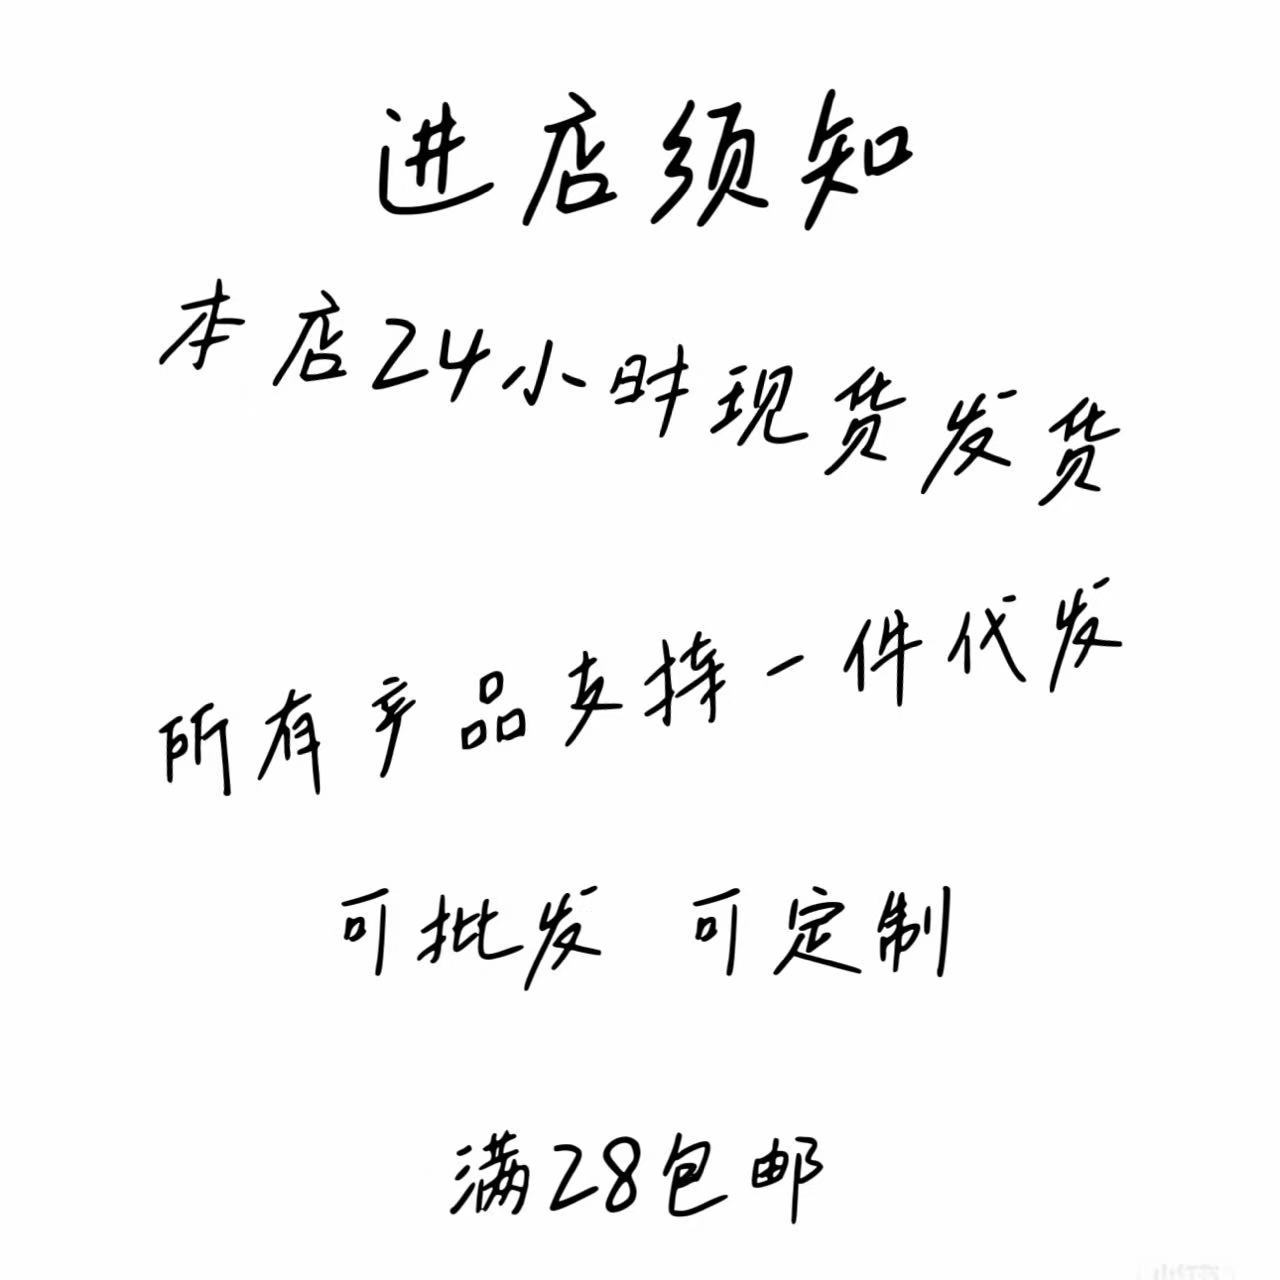 进店须知
本店24小时现货发货
所有产品支持一件代发
可批发 可定制
满28包邮